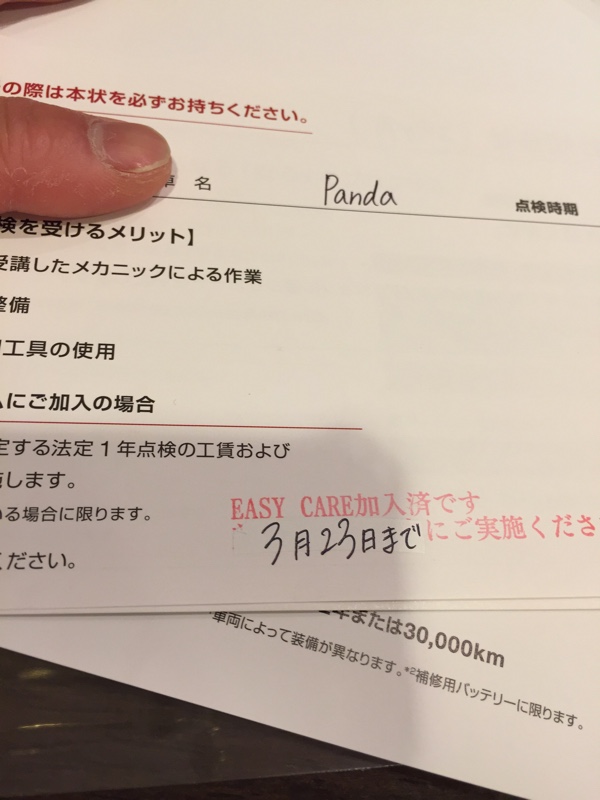 の際は本状を必ずお持ちください。
車 名 Panda 点検時期
検を受けるメリット】
受講したメカニックによる作業
整備
工具の使用
にご加入の場合
定する法定1年点検の工賃および
施します。
いる場合に限ります。
EASY CARE加入済です
3月23日まで にご実施くださ
ください。
または30,000km
*車両によって装備が異なります。*2補修用バッテリーに限ります。